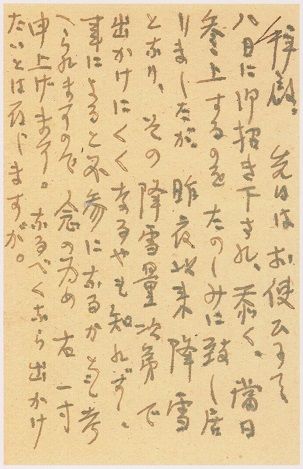 拝啓。先日はお使にて
八日に御招き下され、忝く、当日
参上するのをたのしみに致し居
りましたが、昨夜以来降雪
となり、その降雪量次第で
出かけにくくなるやも知れず、
事によると不参になるかとも考
へられますので、念の為め右一寸
申上げます。なるべくなら出かけ
たいとは存じますが。